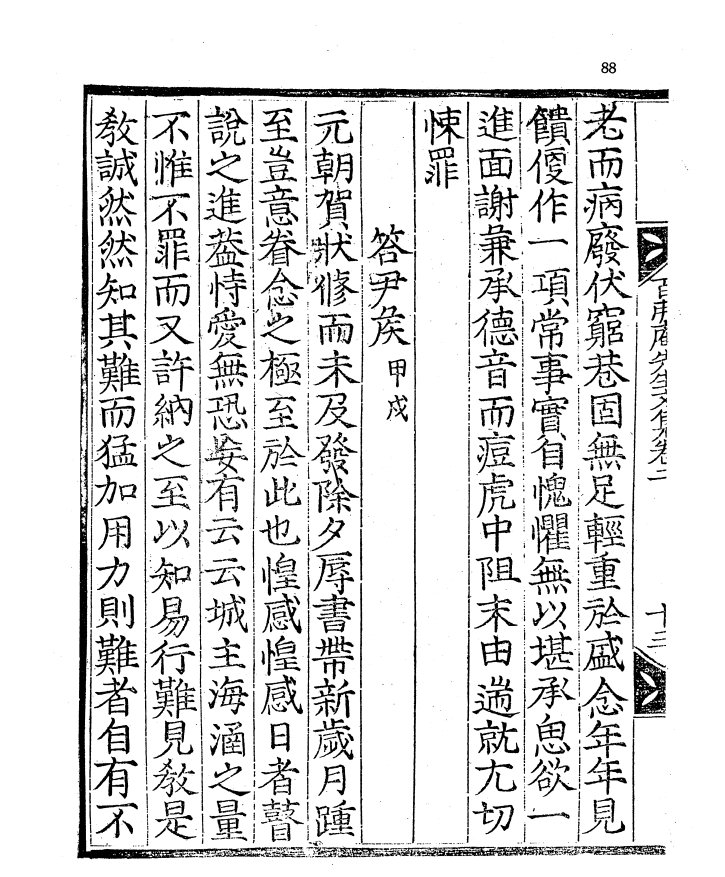 88
老而病廢伏窮巷固無足輕重於盛念年年見
饋優作一項常事實自愧懼無以堪承思欲一
進面謝兼承德音而痘虎中阻末由遄就尤切
悚罪
答尹矦 甲戌
元朝賀狀修而未及發除夕辱書帶新歲月踵
至豈意眷念之極至於此也惶感惶感日者瞽
說之進葢恃愛無恐妄有云云城主海涵之量
不惟不罪而又許納之至以知易行難見敎是
敎誠然然知其難而猛加用力則難者自有不
先生文集卷二
十二